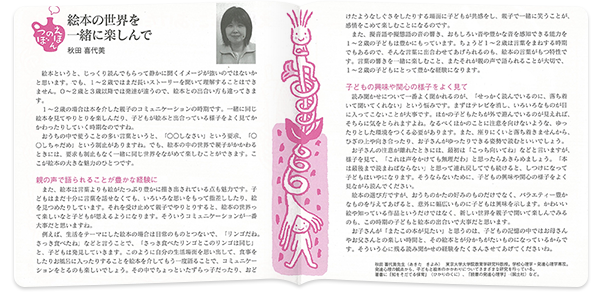 えほんのつぼ
絵本の世界を
一緒に楽しんで
秋田 喜代美
絵本というと、じっくり読んでもらって静かに聞くイメージが強いのではないか
と思います。でも、1〜2歳ではまだ長いストーリーを聞いて理解することはでき
ません。0〜2歳と3歳以降では発達が違うので、絵本との出合い方も違ってきま
す。
1〜2歳の場合は本を介した親子のコミュニケーションの時間です。一緒に同じ
絵を見てやりとりを楽しんだり、子どもが絵本と出合っている様子をよく見てか
かわったりしていく時期なのですね。
おうちの中で使うことの多い言葉というと、「〇〇しなさい」という要求、「〇
〇しちゃだめ」という制止がありますね。でも、絵本の中の世界で親子がかかわる
ときには、要求も制止もなく一緒に同じ世界をながめて楽しむことができます。こ
こが絵本の大きな魅力のひとつです。
親の声で語られることが豊かな経験に
また、絵本は言葉よりも絵がたっぷり豊かに描き出されている点も魅力です。子
どもはまだ十分に言葉を話せなくても、いろいろな思いをもって指差ししたり、絵
を見つめたりしています。それを受け止めて親子でやりとりすると、絵本の世界っ
て楽しいなと子どもが思えるようになります。そういうコミュニケーションが一番
大事だと思いますね。
例えば、生活をテーマにした絵本の場合は日常のものとつないで、「リンゴだね。
さっき食べたね」などと言うことで、「さっき食べたリンゴとこのリンゴは同じ」
と、子どもは発見していきます。このように自分の生活場面を思い出して、食事を
したりお風呂に入ったりすることを絵本を介してもう一度語ることで、コミュニ
ケーションをとるのも楽しいでしょう。その中でちょっといたずらっ子だったり、おど
けたようなしぐさをしたりする場面に子どもが共感をし、親子で一緒に笑うことが、
感情をこめて楽しむことになりますね。
また、擬音語や擬態語の音の響き、おもしろい音や豊かな音を感知できる能力を
1〜2歳の子どもは豊かにもっています。ちょうど1〜2歳は言葉をまねる時期
でもあるので、そんな言葉に出合わせてくれるのも、絵本の言葉がもつ特性で
す。言葉の響きを一緒に楽しむこと、またそれが親の声で語られることが大切で、
1〜2歳の子どもにとって豊かな経験になります。
子どもの興味や関心の様子をよく見て
読み聞かせについて一番よく聞かれるのが、「せっかく読んでいるのに、落ち着
いて聞いてくれない」という悩みです。まずはテレビを消し、いろいろなものが目
に入ってこないことが大事です。ほかの子どもたちが外で遊んでいるのが見えれば、
そちらに気をとられますよね。なるべくほかのことに注意を向けないような、ゆっ
たりとした環境をつくる必要があります。また、座りにくいと落ち着きませんから、
ひざの上や向き合ったり、お子さんがゆったりできる姿勢で読むといいでしょう。
お子さんの注意が離れたときには、最初は「こっち向いてね」などと言いますが、
様子を見て、「これは声をかけても無理だわ」と思ったらあきらめましょう。「本
は最後まで読まねばならない」と思って連れ戻してでも読むのだと、しつけになって
子どもはいやになります。そうならないために、子どもの興味や関心の様子をよく
見ながら読んでください。
絵本の選び方ですが、おうちのかたの好みのものだけでなく、バラエティー豊か
なものを与えてあげると、意外に幅広いものに子どもは興味を示します。かわいい
絵や知っている作品というだけではなく、新しい世界を親子で開いて楽しんでみる
のも、この時期の子どもと絵本の出合いでは大事だと思います。
お子さんが「またこの本が見たい」と思うのは、子どもの記憶の中ではお母さん
やお父さんとの楽しい時間と、その絵本とが分かちがたいものになっているからで
す。そういう心に残る読み聞かせの経験をたくさんさせてあげてください。
秋田 喜代美先生（あきた きよみ） 東京大学大学院教育学研究科教授。学校心理学・発達心理学専攻。
発達心理の観点から、子どもと絵本のかかわりについてさまざまな研究を行っている。
著書に『知をそだてる保育』（ひかりのくに）、『授業の発達心理学』（岡土社）など。